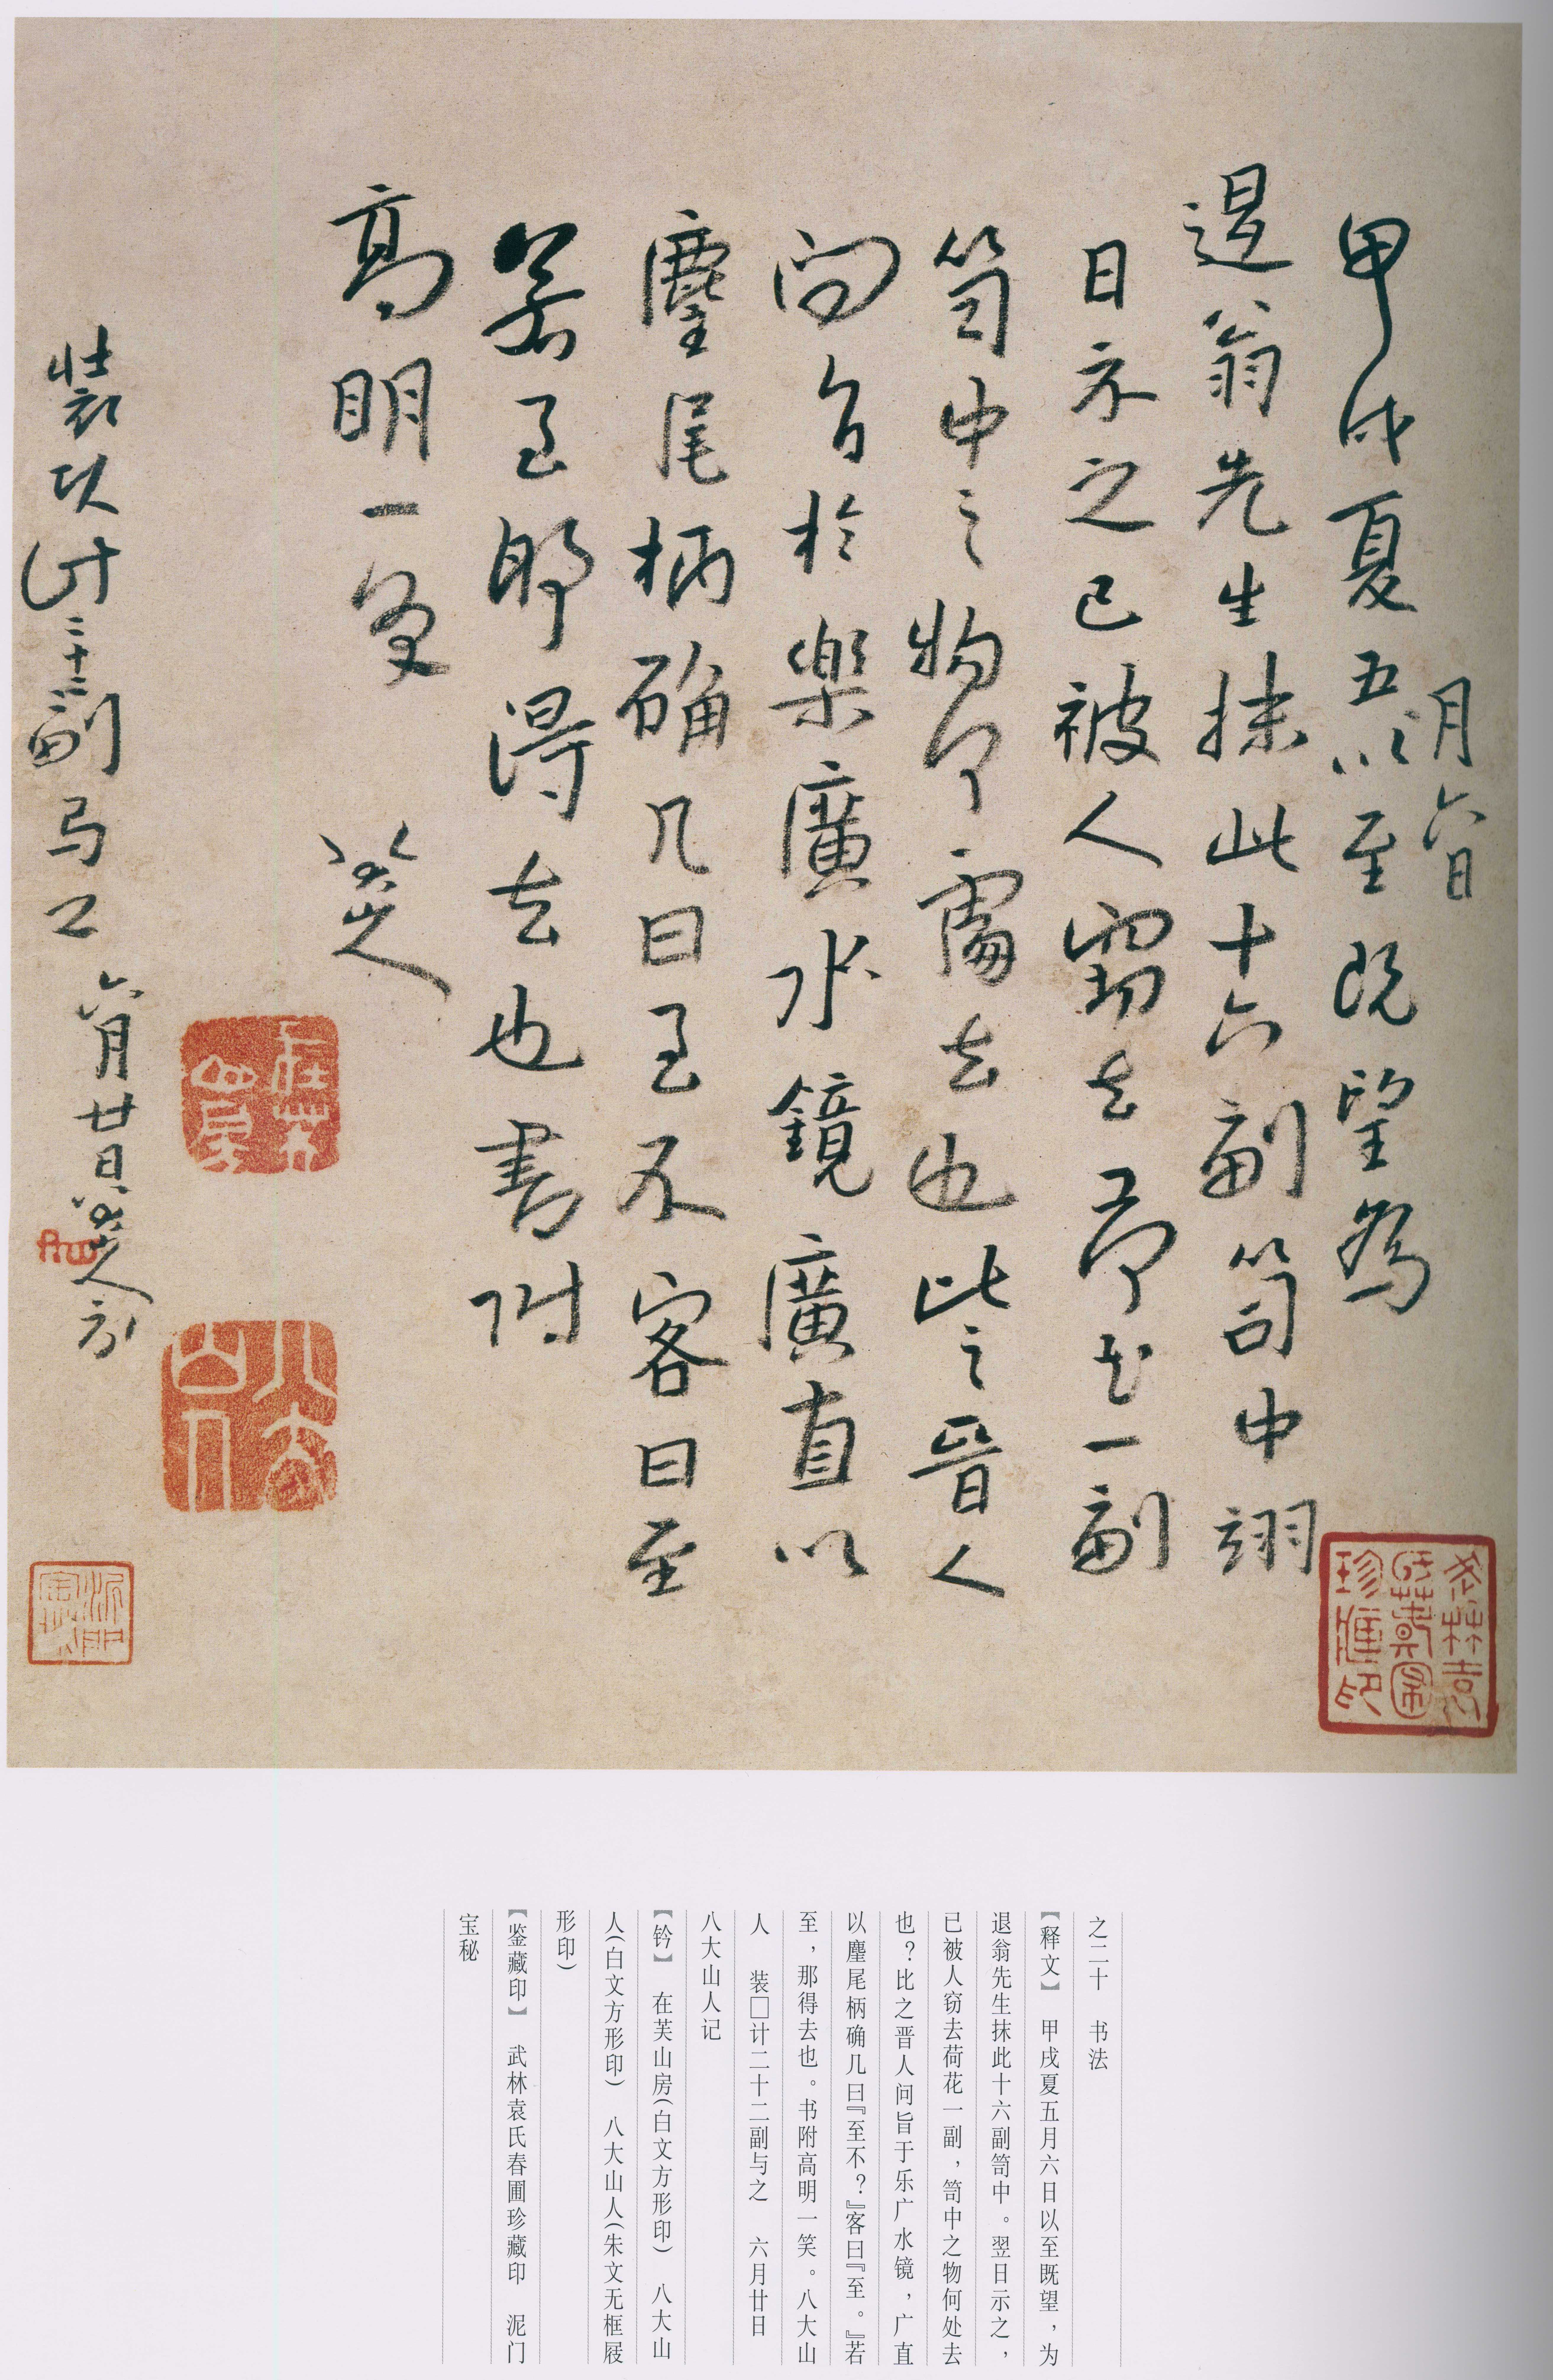 甲戌夏五以至既望為
月六日
退翁先生抹此十六副笥中翊
日示之已被人竊去荷花一副
笥中之物何處去也比之晉人
问旨於樂廣水鏡廣直以
麈尾柄确几曰至不客曰至
若至那得去也書附
高明一笑
八大山人
装 计二十二副与之六月廿日八大山人记
之二十 书法
【释文】 甲戌夏五月六日以至既望，为
退翁先生抹此十六副笥中。翌日示之，
已被人窃去荷花一副，笥中之物何处去
也？比之晋人问旨于乐广水镜，广直
以麈尾柄确几曰『至不？』客曰『至。』若
至，那得去也。书附高明一笑。八大山
人 装□计二十二副与之 六月廿日
八大山人记
【钤】 在芙山房(白文方形印) 八大山
人(白文方形印) 八大山人(朱文无框屐
形印)
【鉴藏印】 武林袁氏春圃珍藏印 泥门
宝秘